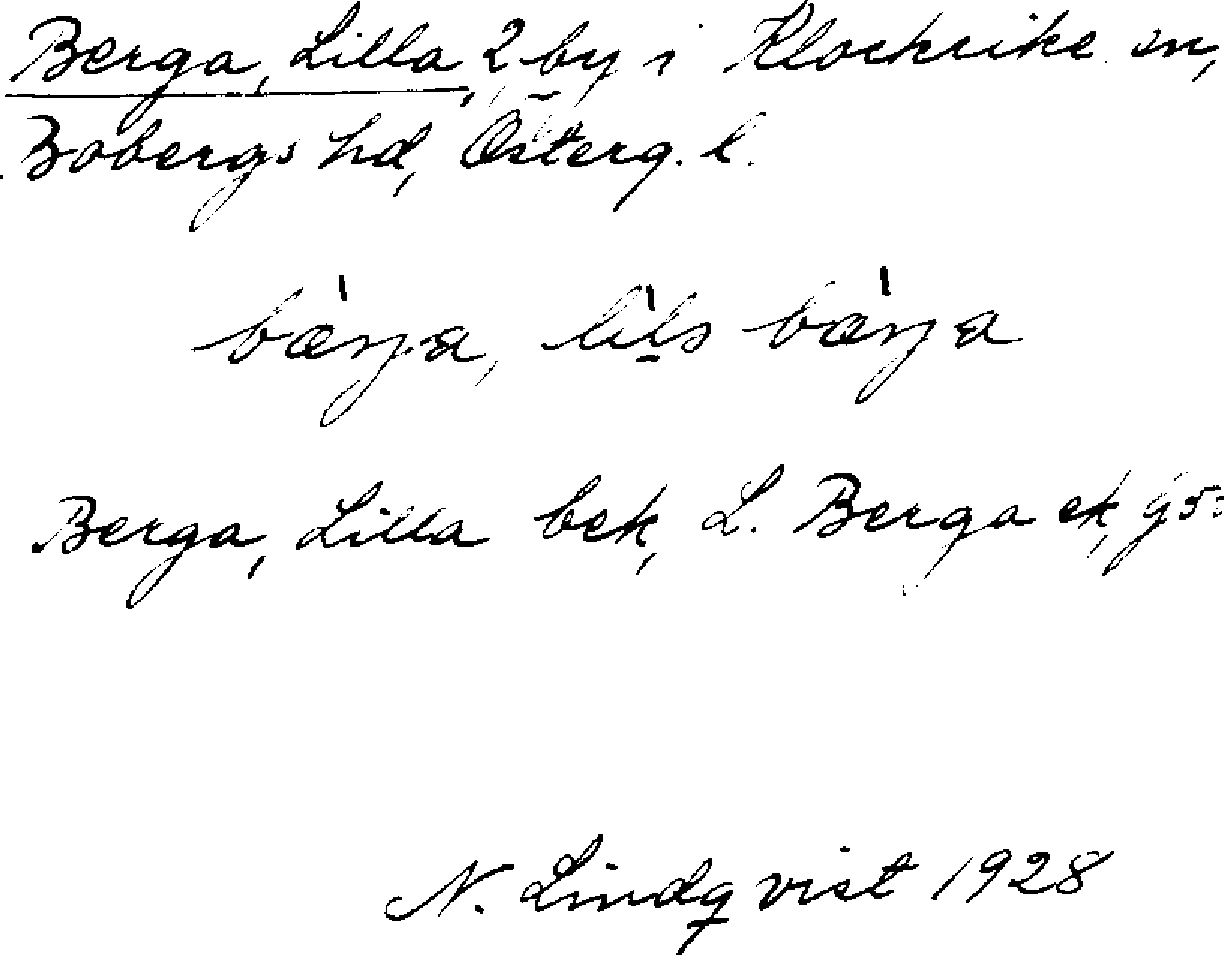 Berga, Lilla, 2 by i Klockrike sn,
Bobergs hd, Österg. l.
bæ̀rya, lìls bæ̀rya
Berga, Lilla bek, L. Berga ek, g5:
N. Lindqvist 1928